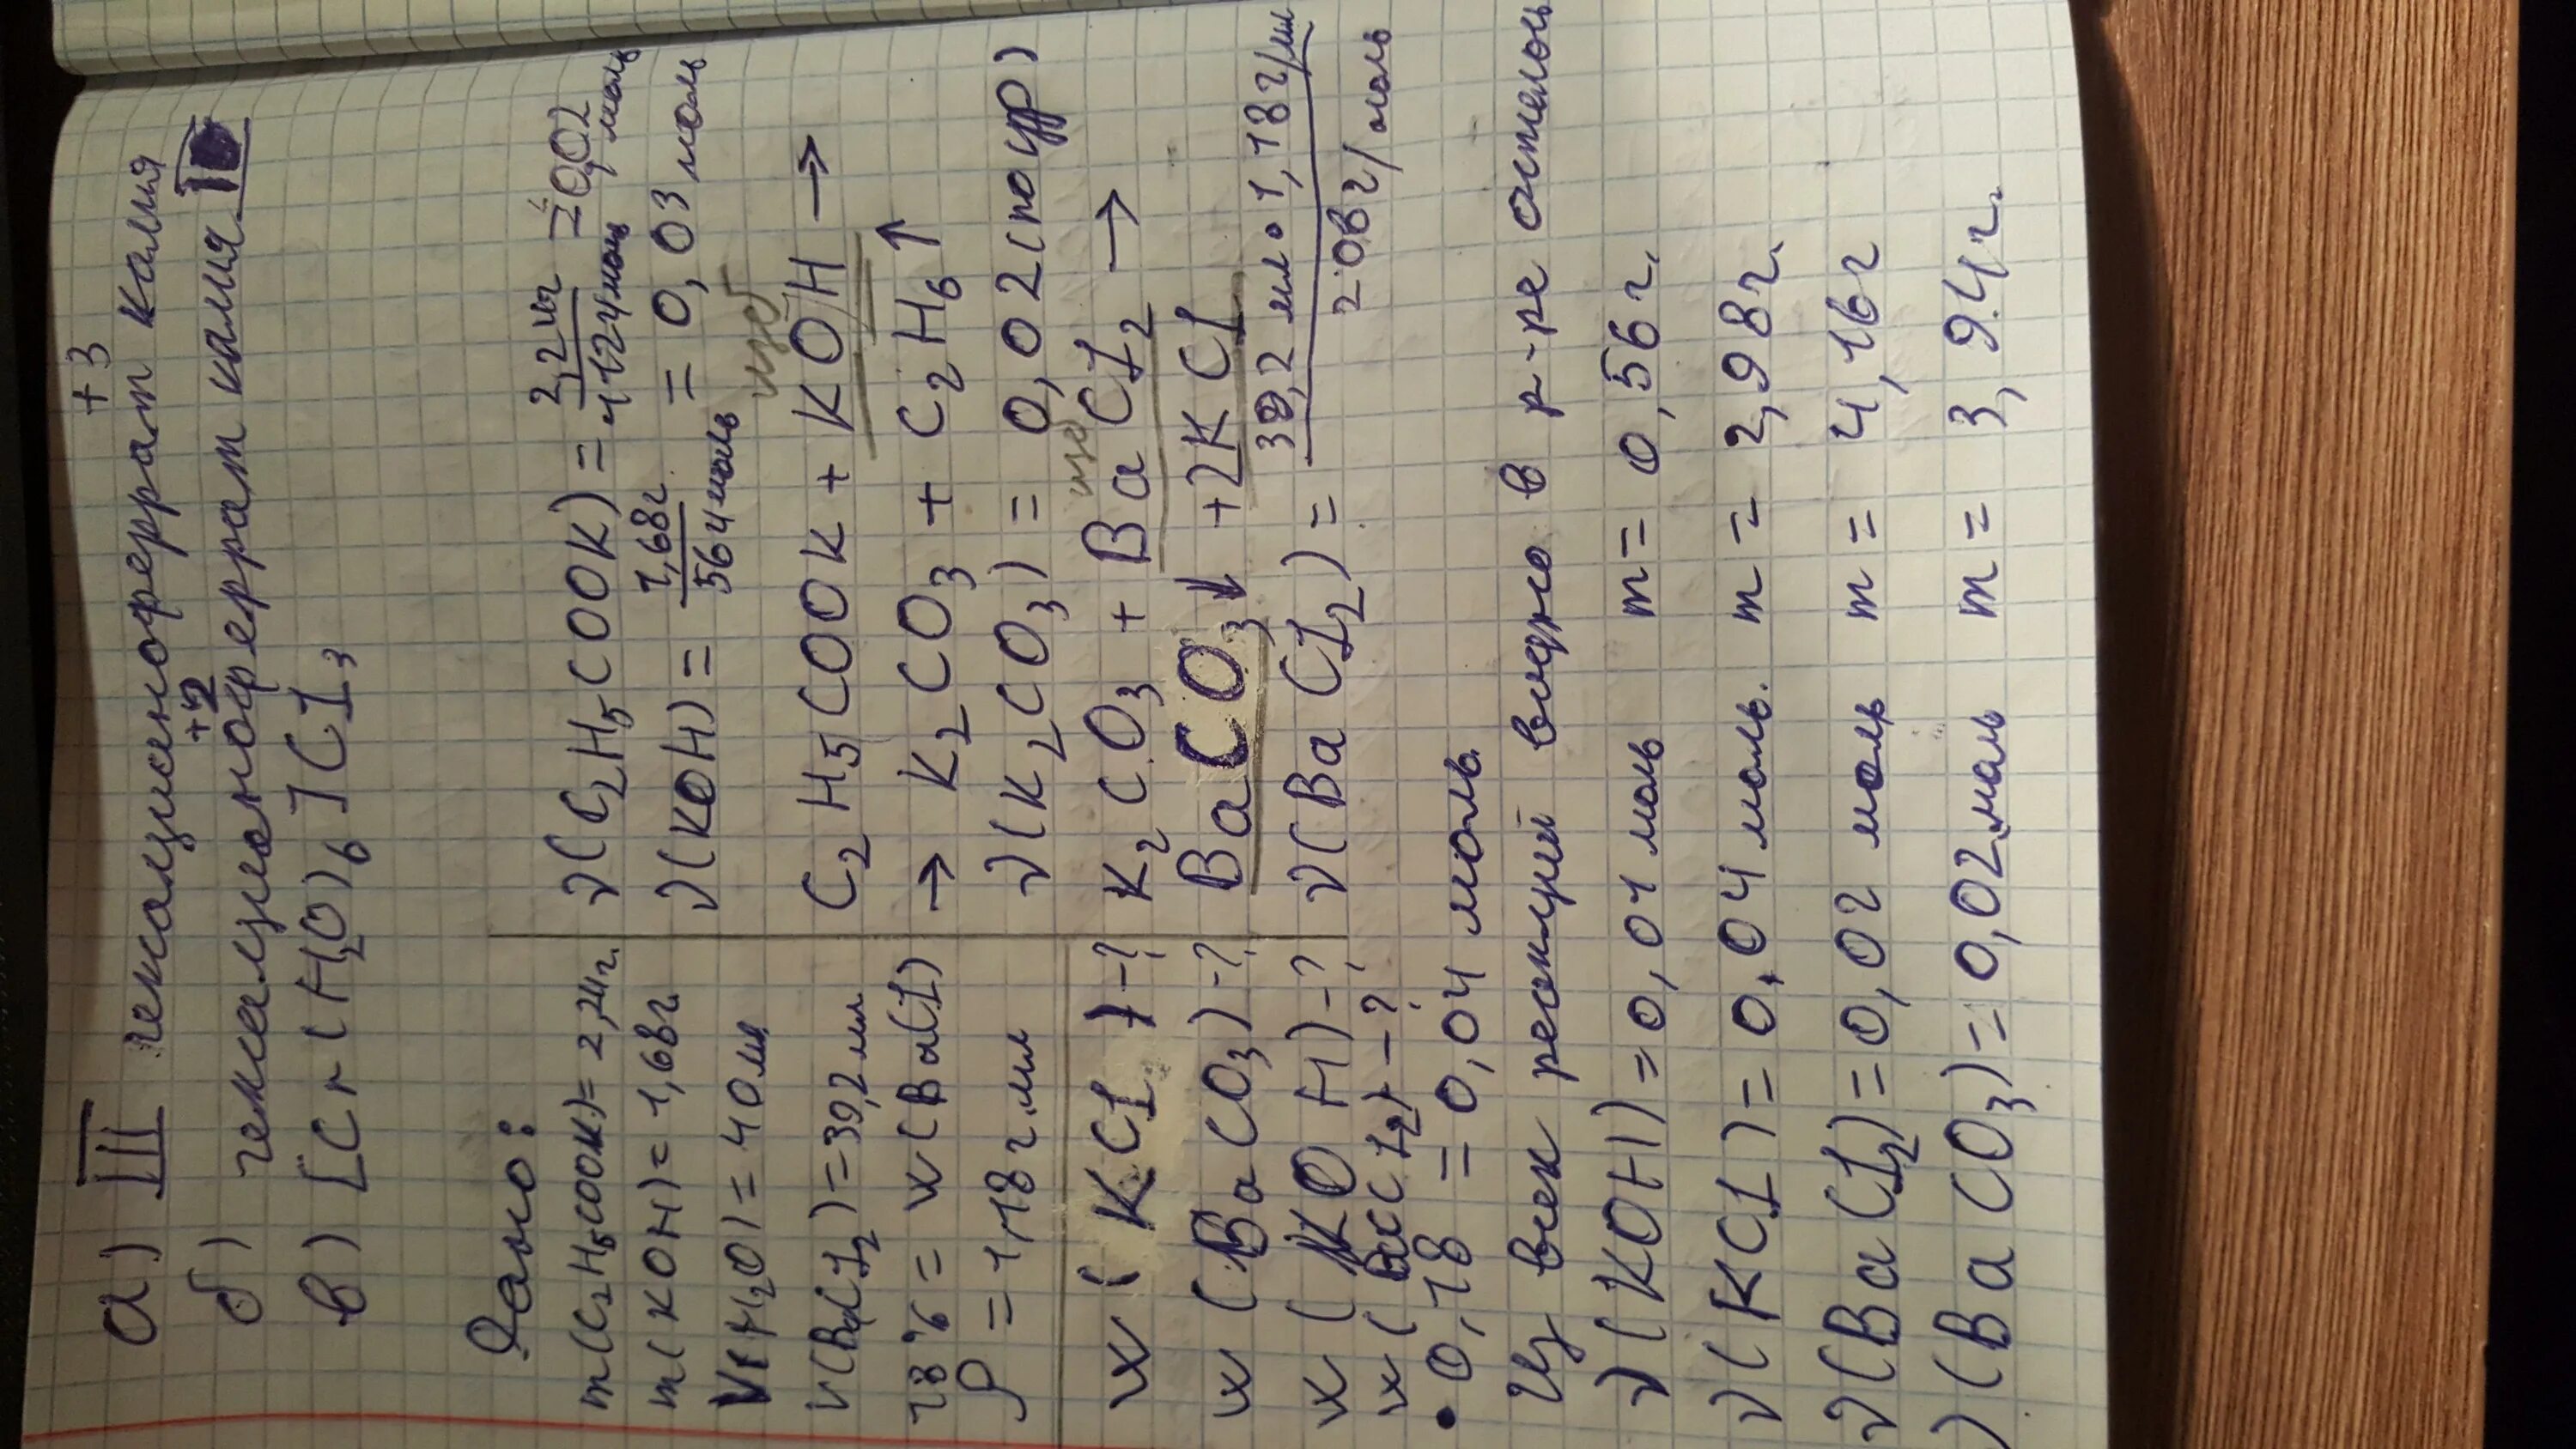 а) III гексацианоферрат +3 калия
б) гексацианоферрат +2 калия
в) [Cr(H2O)6]Cl3
Дано:
m(C2H5COOK)=2,24г.
m(KOH)=1,68г.
V(H2O)=40мл
V(BaCl2)=39,2мл
18%=w(BaCl)
ρ=1,18г.мл
w(KCl)-?
w(BaCO3)-?
w(KOH)-?
w(BaCl2)-?
ν(C2H5COOK)=2,24г/112г/моль=0,02моль
ν(KOH)=1,68г./56г/моль=0,03моль
изб
C2H5COOK+KOH→
→K2CO3+C2H6↑
ν(K2CO3)=0,02(по ур)
изб
K2CO3+BaCl2→
BaCO3↓+2KCl
ν(BaCl2)=39,2мл•1,18г/мл/208г/моль
•0,18=0,04моль.
Из всех реакций видно в р-ре остались
ν(KOH)=0,01моль m=0,56г.
ν(KCl)=0,04моль. m=2,98г.
ν(BaCl2)=0,02моль m=4,16г
ν(BaCO3)=0,02моль m=3,94г.